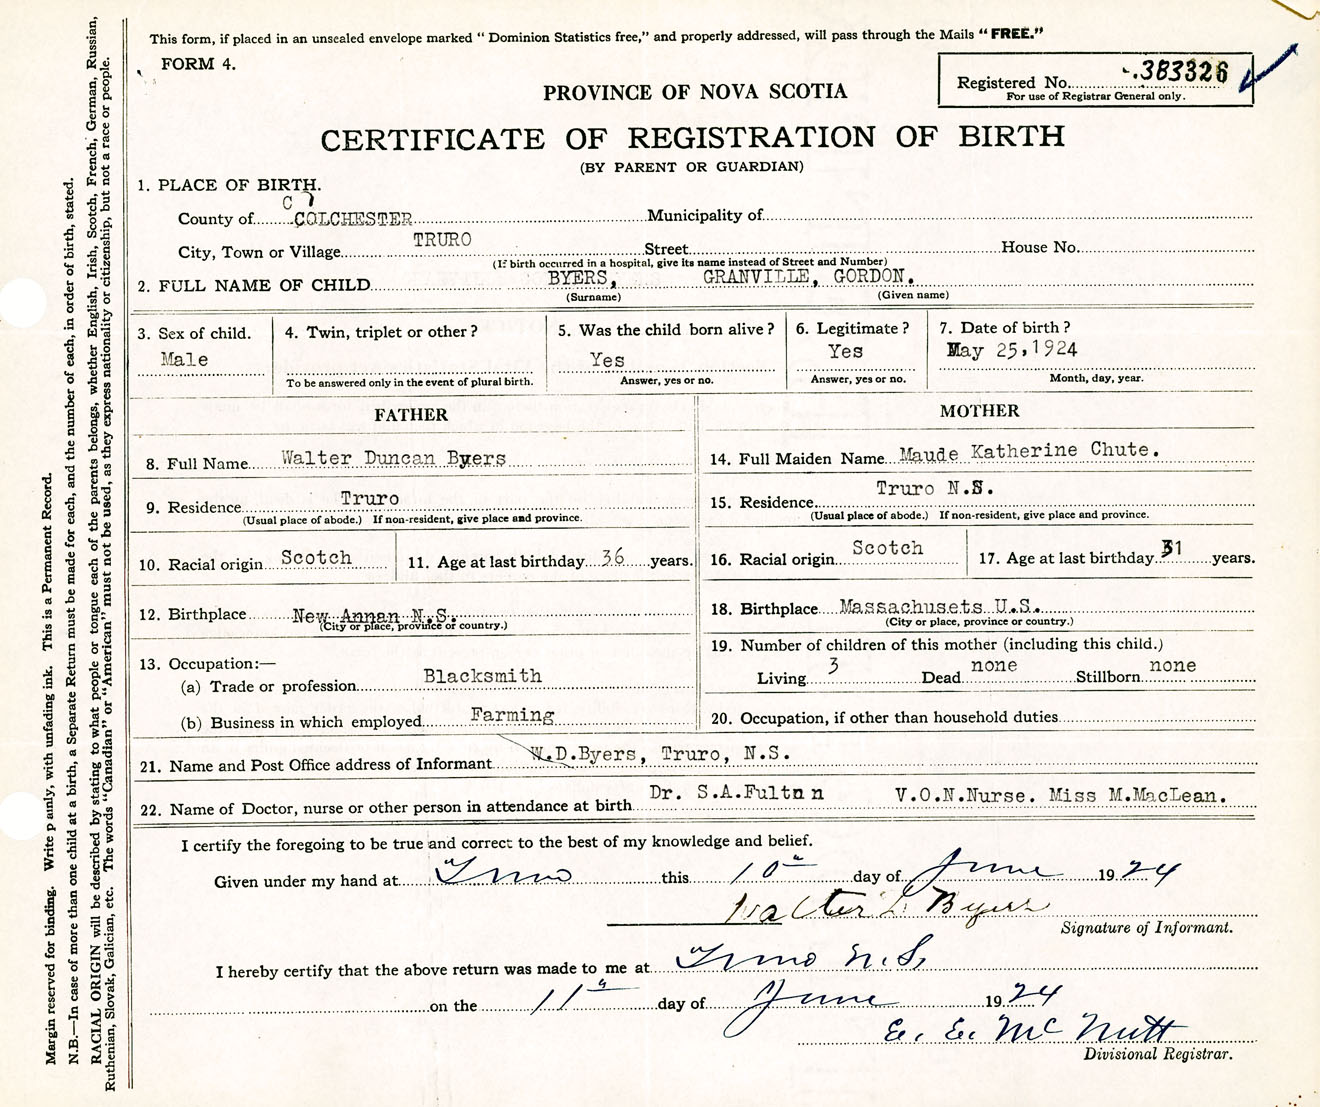 This form, if placed in an unsealed envelope marked " Dominion Statistics free," and properly addressed, will pass through the Mails " FREE."
FORM 4.
Registered No. 383326
For use of Registrar General only.
PROVINCE OF NOVA SCOTIA
CERTIFICATE OF REGISTRATION OF BIRTH
(BY PARENT OR GUARDIAN)
1. PLACE OF BIRTH.
C
County of COLCHESTER Municipality of
City, Town or Village TRURO Street House No.
(If birth occurred in a hospital, give its name instead of Street and Number)
2. FULL NAME OF CHILD BYERS, GRANVILLE, GORDON.
(Surname) (Given name)
3. Sex of child. 4. Twin, triplet or other? 5. Was the child born alive? 6. Legitimate? 7. Date of birth?
Male Yes Yes May 25, 1924
To be answered only in the event of plural birth. Answer, yes or no. Answer, yes or no. Month, day, year.
FATHER
8. Full Name Walter Duncan Byers
9. Residence Truro
(Usual place of abode.) If non-resident, give place and province.
10. Racial origin Scotch 11. Age at last birthday 36 years.
12. Birthplace New Annan N.S.
(City or place, province or country.)
13. Occupation:—
(a) Trade or profession Blacksmith
(b) Business in which employed Farming
MOTHER
14. Full Maiden Name Maude Katherine Chute.
15. Residence Truro N.S.
(Usual place of abode.) If non-resident, give place and province.
16. Racial origin Scotch 17. Age at last birthday 31 years.
18. Birthplace Massachusets U.S.
(City or place, province or country.)
19. Number of children of this mother (including this child.)
Living 3 Dead none Stillborn none
20. Occupation, if other than household duties
21. Name and Post Office address of Informant W.D.Byers, Truro, N.S.
22. Name of Doctor, nurse or other person in attendance at birth Dr. S.A.Fultnn V.O.N.Nurse. Miss M.MacLean.
I certify the foregoing to be true and correct to the best of my knowledge and belief.
Given under my hand at Truro this 10th day of June 1924
Walter D. Byers
Signature of Informant.
I hereby certify that the above return was made to me at Truro N.S.
on the 11th day of June 1924
E. E. McNutt
Divisional Registrar.
Margin reserved for binding. Write p anly, with unfading ink. This is a Permanent Record.
N.B.—In case of more than one child at a birth, a Separate Return must be made for each, and the number of each, in order of birth, stated.
RACIAL ORIGIN will be described by stating to what people or tongue each of the parents belongs, whether English, Irish, Scotch, French, German, Russian,
Ruthenian, Slovak, Galician, etc. The words "Canadian" or "American" must not be used, as they express nationality or citizenship, but not a race or people.